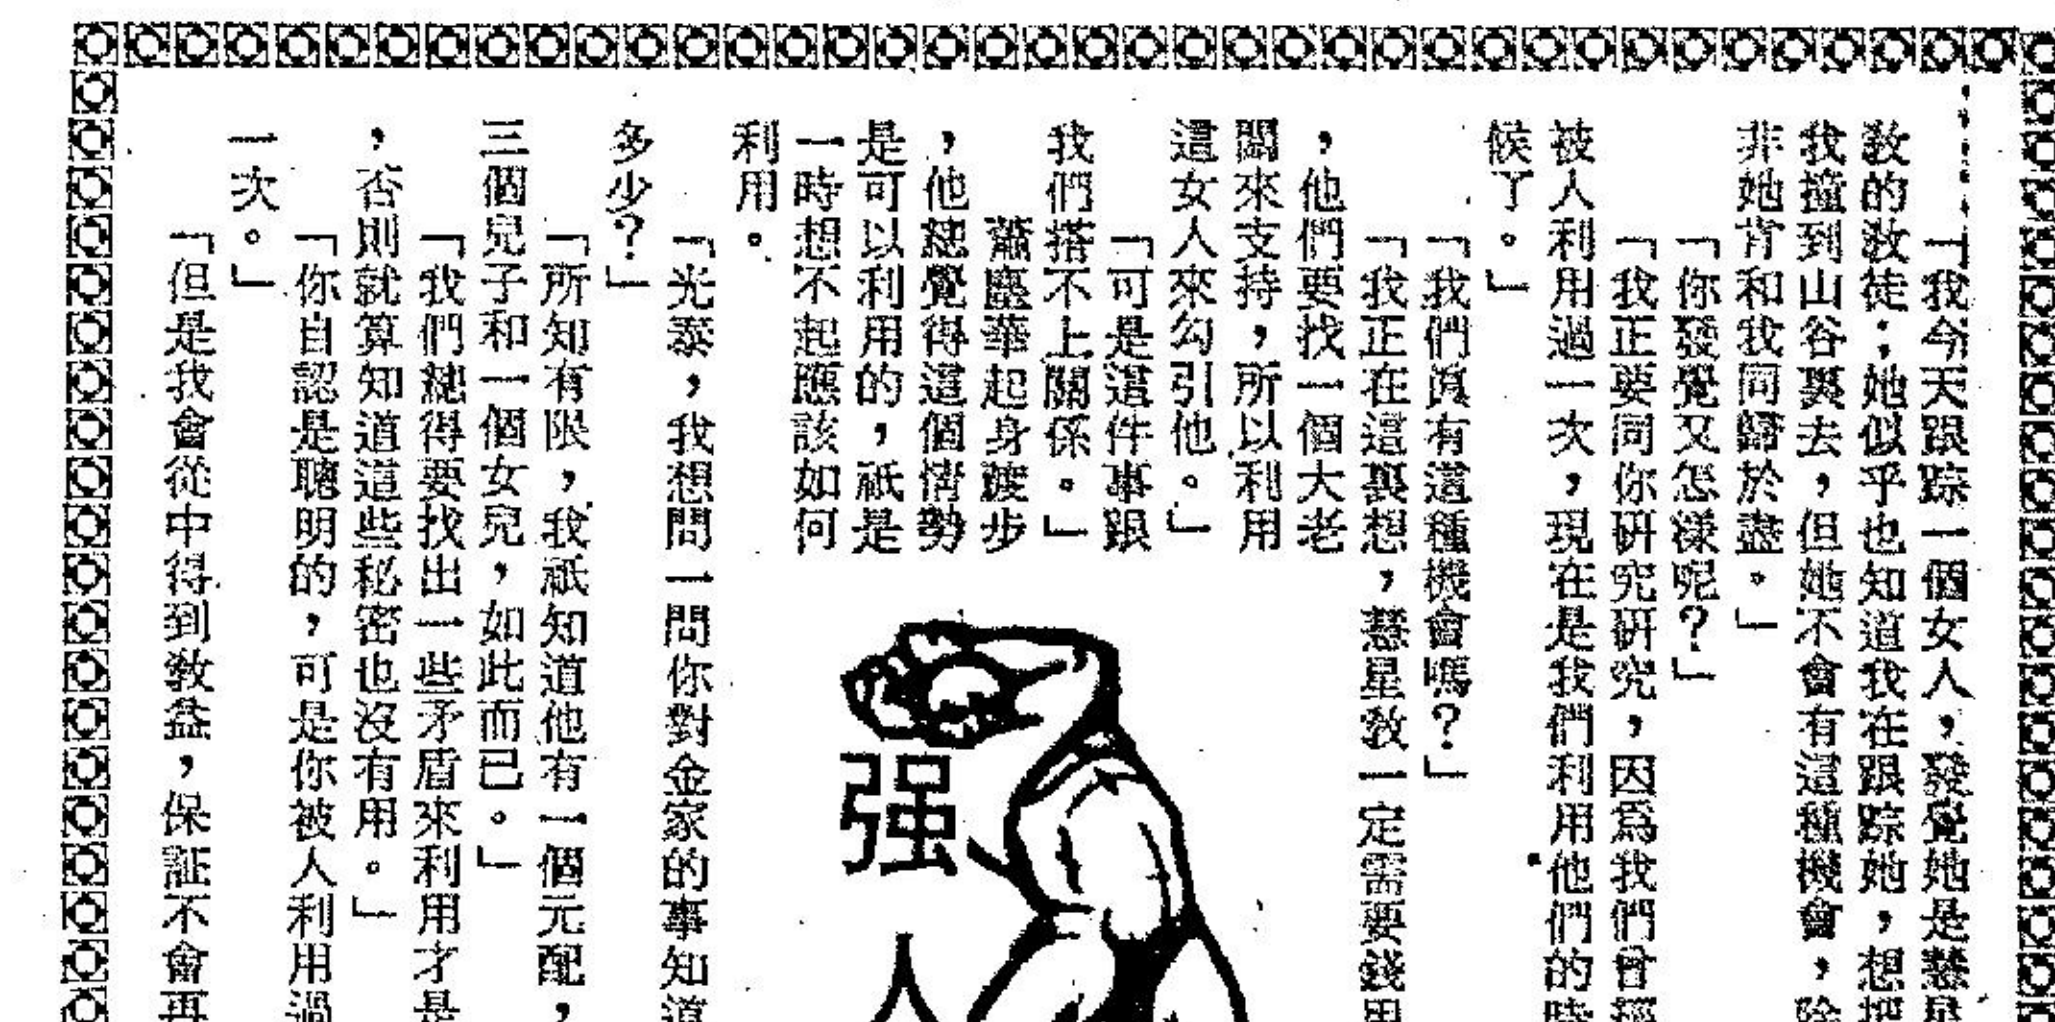 「我今天跟踪一個女人，發覺她是慧星
教的教徒；她似乎也知道我在跟踪她，想把
我撞到山谷裏去，但她不會有這種機會，除
非她肯和我同歸於盡。」
「你發覺又怎樣呢？」
「我正要同你研究研究，因爲我們曾經
被人利用過一次，現在是我們利用他們的時
候了。」
「我們眞有這種機會嗎？」
「我正在這裏想，慧星教一定需要錢用
，他們要找一個大老
闆來支持，所以利用
這女人來勾引他。」
「可是這件事跟
我們搭不上關係。」
蕭塵華起身踱步
，他總覺得這個情勢
是可以利用的，祇是
一時想不起應該如何
利用。
「光泰，我想問一問你對金家的事知道
多少？」
「所知有限，我祇知道他有一個元配，
三個兒子和一個女兒，如此而已。」
「我們總得要找出一些矛盾來利用才是
，否則就算知道這些秘密也沒有用。」
「你自認是聰明的，可是你被人利用過
一次。」
「但是我會從中得到教益，保証不會再
强
人